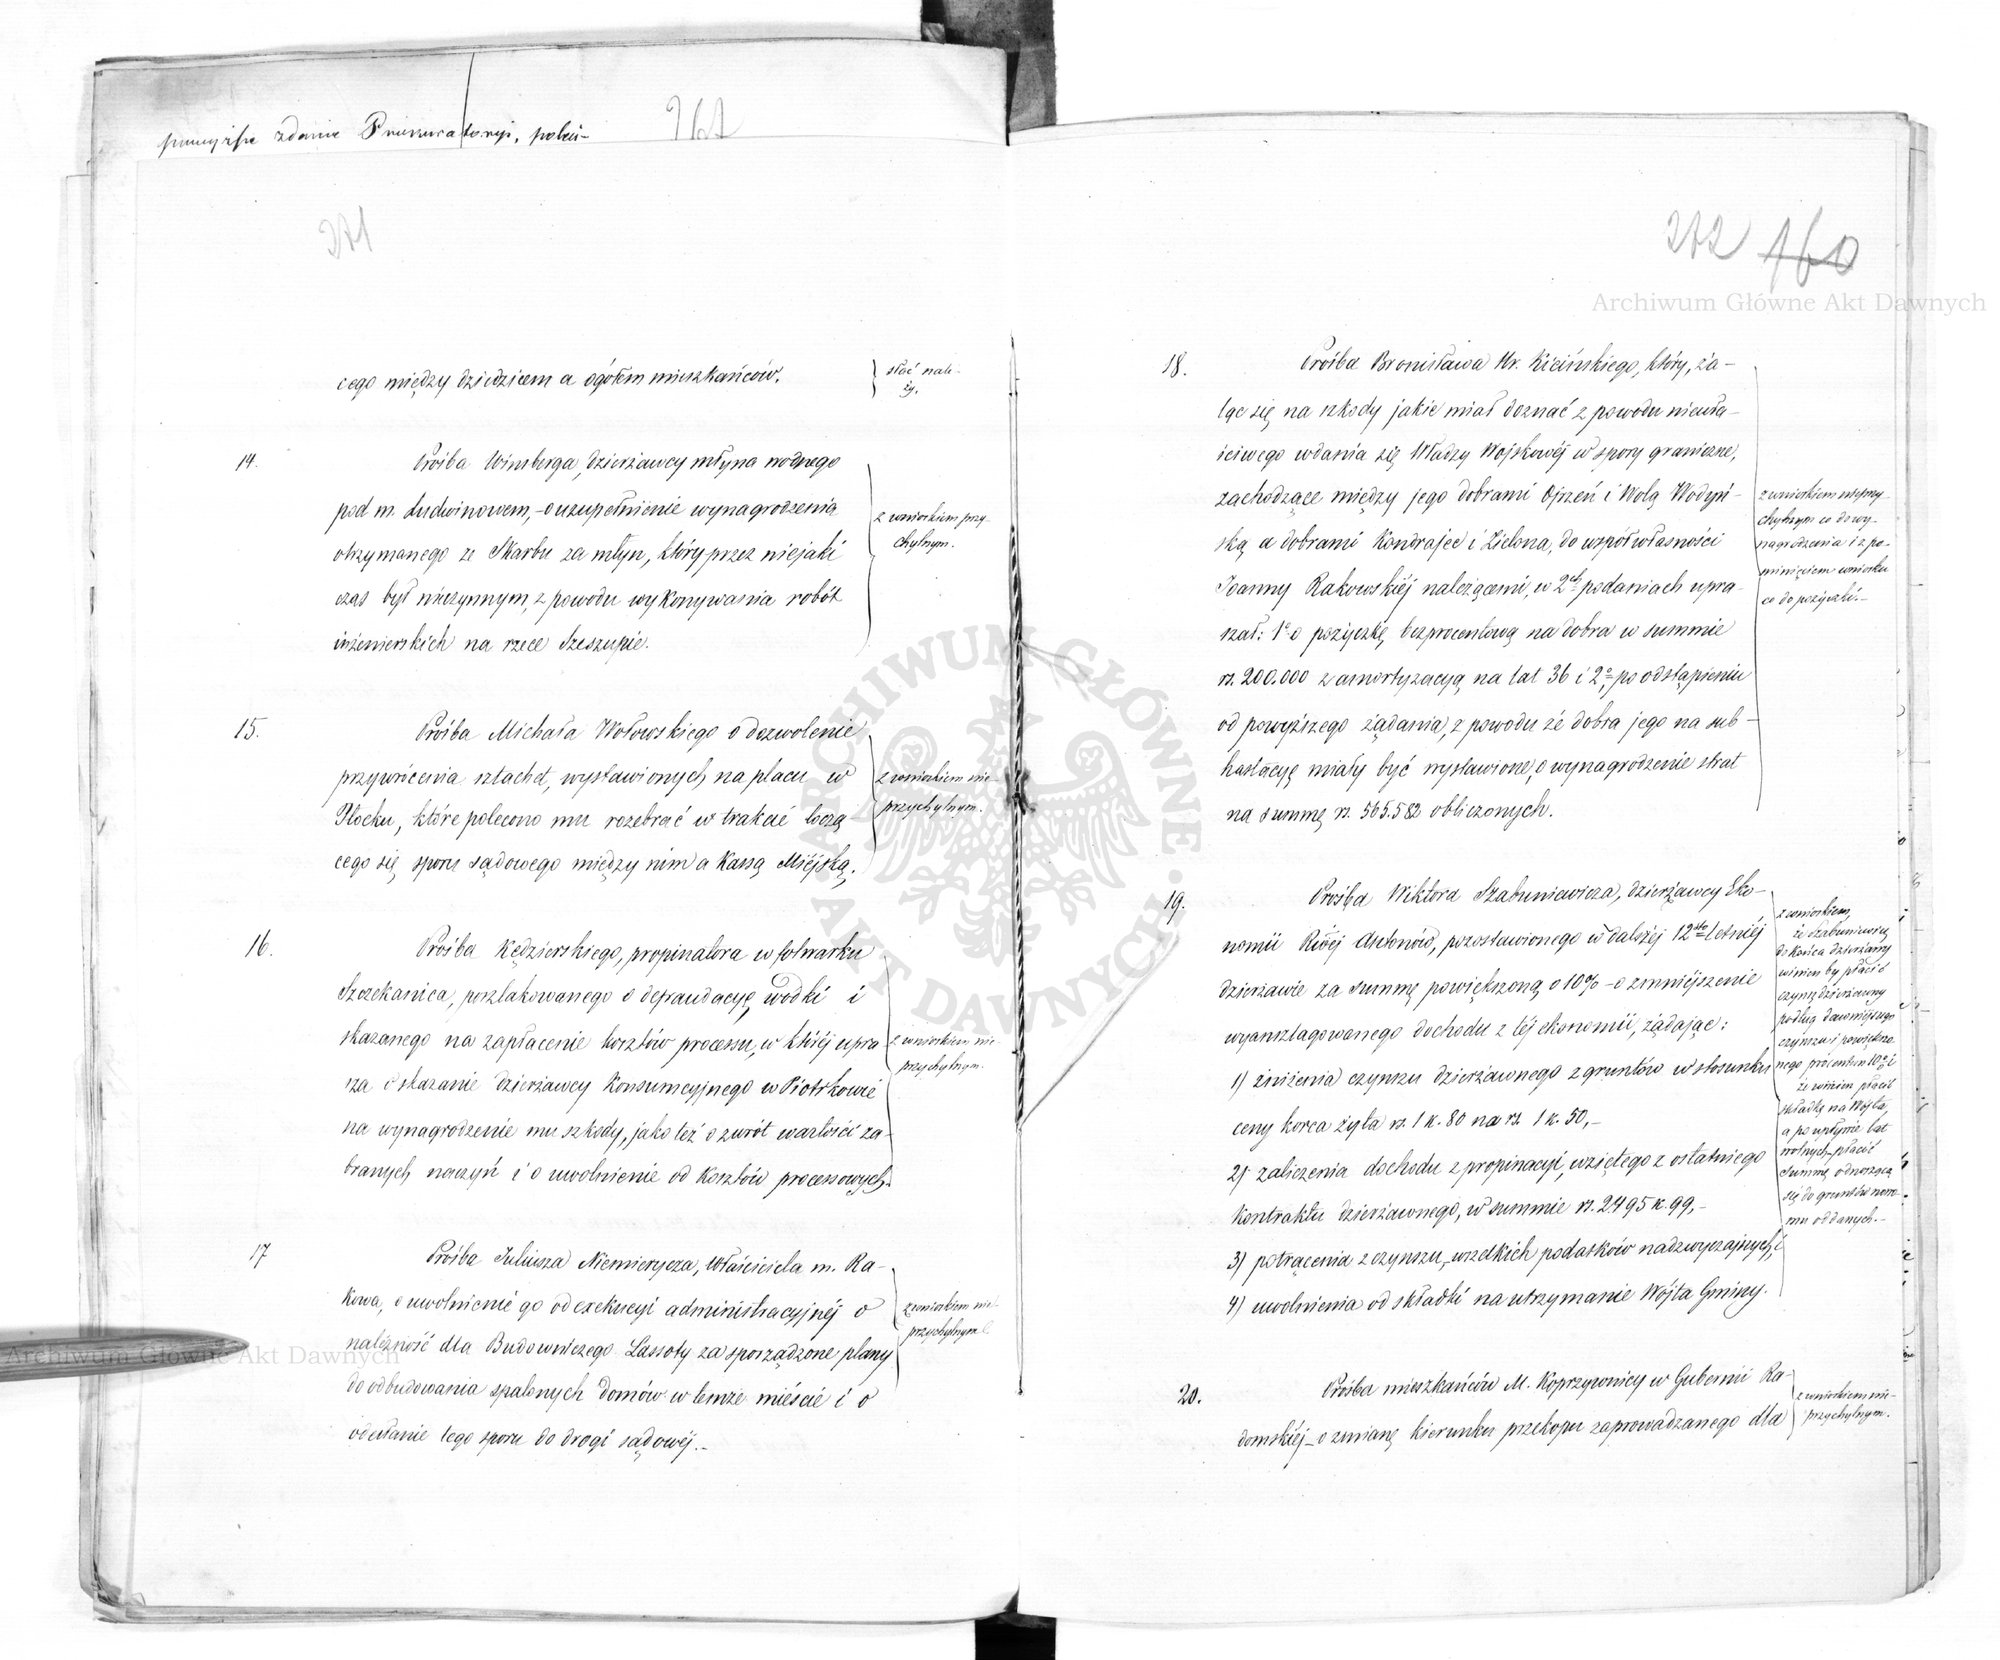 powyższe zdanie Prokuratoryi, poleci-
271
cego między dziedzicem a ogółem mieszkańców.
słać nale-
ży.
14.
Prośba Winberga, dzierżawcy młyna wodnego
pod m. Ludwinowem, - o uzupełnienie wynagrodzenia
otrzymanego ze Skarbu za młyn, który przez niejaki
czas był nieczynnym, z powodu wykonywania robót
inżenierskich na rzece Szeszupie.
z wnioskiem przy-
chylnym.
15.
Prośba Michała Wołowskiego o dozwolenie
przywrócenia sztachet, wystawionych na placu w
Płocku, które polecono mu rozebrać w trakcie toczą
cego się sporu sądowego między nim a Kassą Miejską.
z wnioskiem nie-
przychylnym.
16.
Prośba Kędzierskiego, propinatora w folwarku
Szczekanica, poszlakowanego o defraudacyę wódki i
skazanego na zapłacenie kosztów processu, w której upra-
sza o skazanie dzierżawcy Konsumcyjnego w Piotrkowie
na wynagrodzenie mu szkody, jako też o zwrót wartości za-
branych naczyń i o uwolnienie od kosztów processowych.
z wnioskiem nie-
przychylnym.
17
Prośba Juliusza Niemirycza, Właściciela m. Ra-
kowa, o uwolnienie go od exekucyi administracyjnej o
należność dla Budowniczego Lassoty za sporządzone plany
do odbudowania spalonych domów w temże mieście i o
odesłanie tego sporu do drogi sądowej. -
z wnioskiem nie-
przychylnym.
272 160
Archiwum Główne Akt Dawnych
18.
Prośba Bronisława Hr. Kicińskiego, który, ża-
ląc się na szkody jakie miał doznać z powodu niewła-
ściwego wdania się Władzy Wojskowej w spory graniczne,
zachodzące między jego dobrami Ojrzeń i Wolą Wodyń-
ską a dobrami Kondrajec i Zielona, do współwłasności
Joanny Rakowskiej należącemi, w 2ch podaniach upra-
szał: 1o o pożyczkę bezprocentową na dobra w summie
rs. 200.000 z amortyzacyą na lat 36 i 2o, po odstąpieniu
od powyższego żądania, z powodu że dobra jego na sub-
hastacyę miały być wystawione, o wynagrodzenie strat
na summę rs. 565.582 obliczonych.
z wnioskiem nieprzy-
chylnym co do wy-
nagrodzenia i z po-
minięciem wniosku
co do pożyczki. -
19.
Prośba Wiktora Szabuniewicza, dzierżawcy Eko-
nomii Rząd. Antonów, pozostawionego w dalszej 12sto letniej
dzierżawie za summę powiększoną o 10% - o zmniejszenie
wyansztagowanego dochodu z tej ekonomii, żądając:
1) zniżenia czynszu dzierżawnego z gruntów w stosunku
ceny korca żyta rs. 1 k. 80 na rs. 1 k. 50, -
2) zaliczenia dochodu z propinacyi, wziętego z ostatniego
kontraktu dzierżawnego, w summie rs. 2495 k. 99, -
3) potrącenia z czynszu, wszelkich podatków nadzwyczajnych, i
4) uwolnienia od składki na utrzymanie Wójta Gminy.
z wnioskiem,
że Szabuniewicz
do końca dzierżawy
winien by płacić
czynsz dzierżawny
podług dawniejszego
czynszu i powiększo-
nego procentem 10% i
że winien płacić
składkę na Wójta,
a po upływie lat
wolnych - płacić
summę odnoszącą
się do gruntów nowo
mu oddanych. -
20.
Prośba mieszkańców M. Koprzywnicy w Gubernii Ra-
domskiej - o zmianę kierunku przekopu zaprowadzanego dla
z wnioskiem nie-
przychylnym.
ARCHIWUM GŁÓWNE AKT DAWNYCH
Archiwum Główne Akt Dawnych